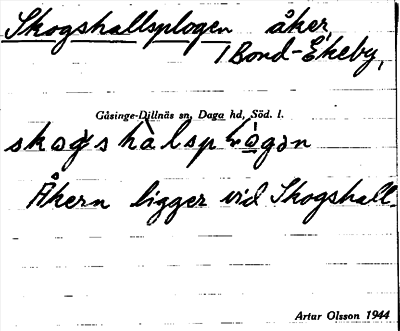 Skogshallsplogen åker,
1 Bond-Ekeby,
Gåsinge-Dillnäs sn, Daga hd, Söd. l.
Åkern ligger vid Skogshall.
Artur Olsson 1944